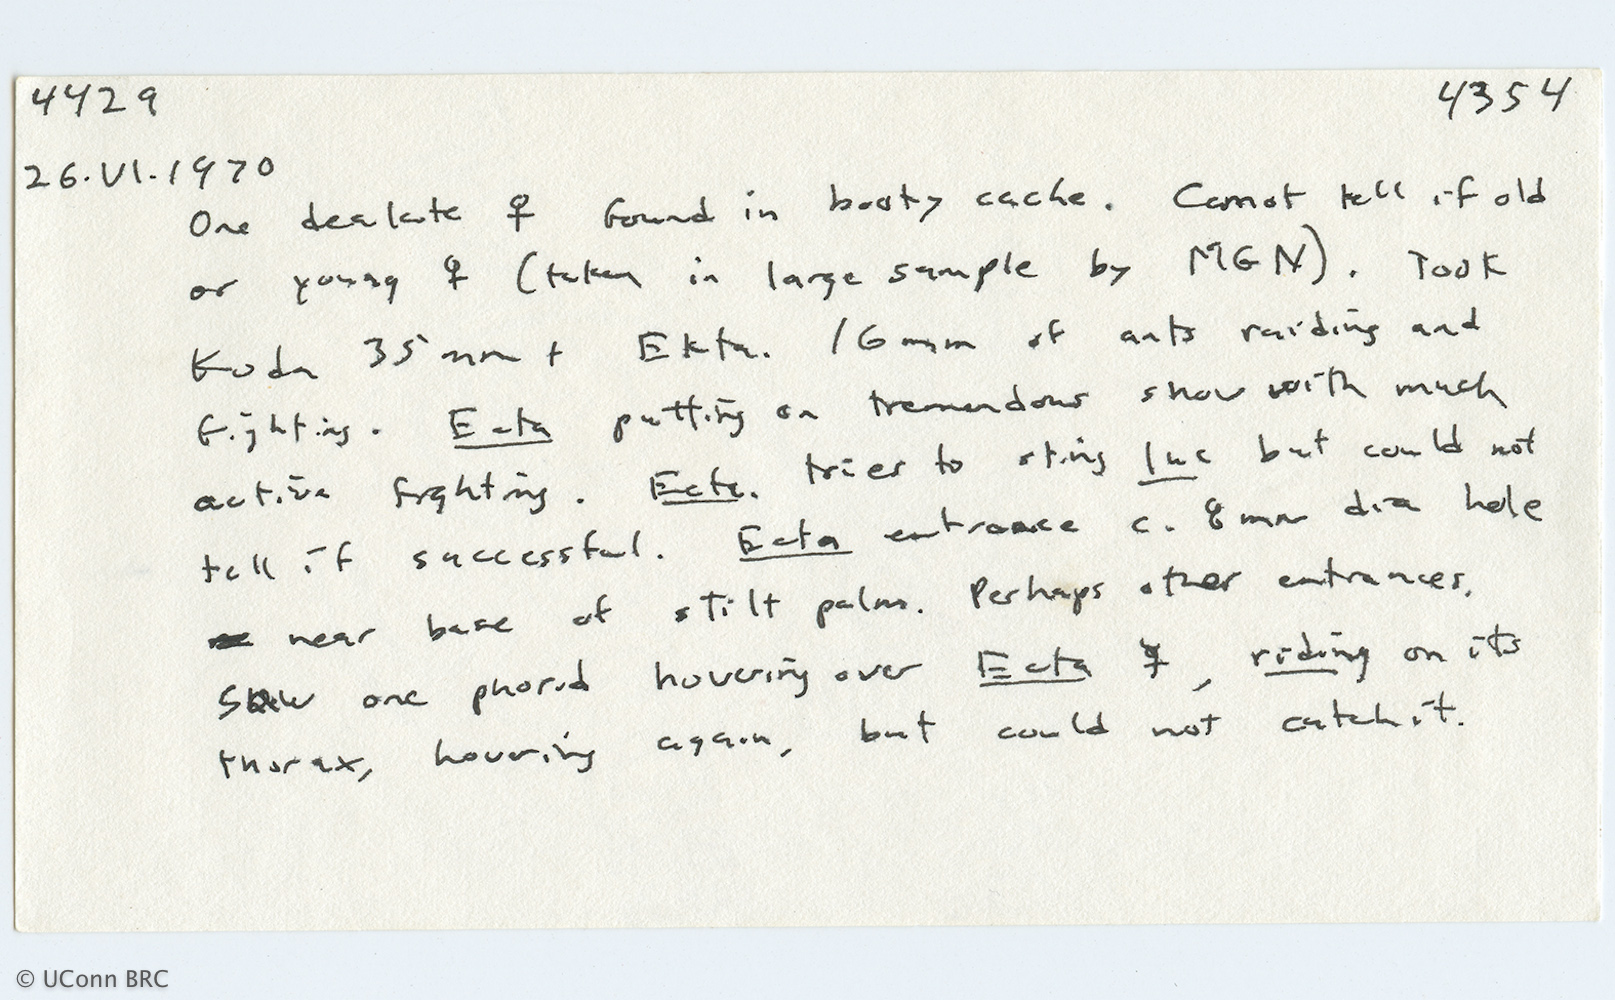 4429 4354
26.VI.1970
One dealate ♀ found in booty cache. Cannot tell if old
or young ♀ (taken in large sample by MGN). Took
Koda 35 mm + Ekta. 16 mm of ants raiding and
fighting. Ecta putting on tremendous show with much
active fighting. Ecta. tries to sting luc but could not
tell if successful. Ecta entrance c. 8 mm dia hole
near base of stilt palm. Perhaps other entrances.
Saw one phorid hovering over Ecta ☿, riding on its
thorax, hovering again, but could not catch it.
© UConn BRC